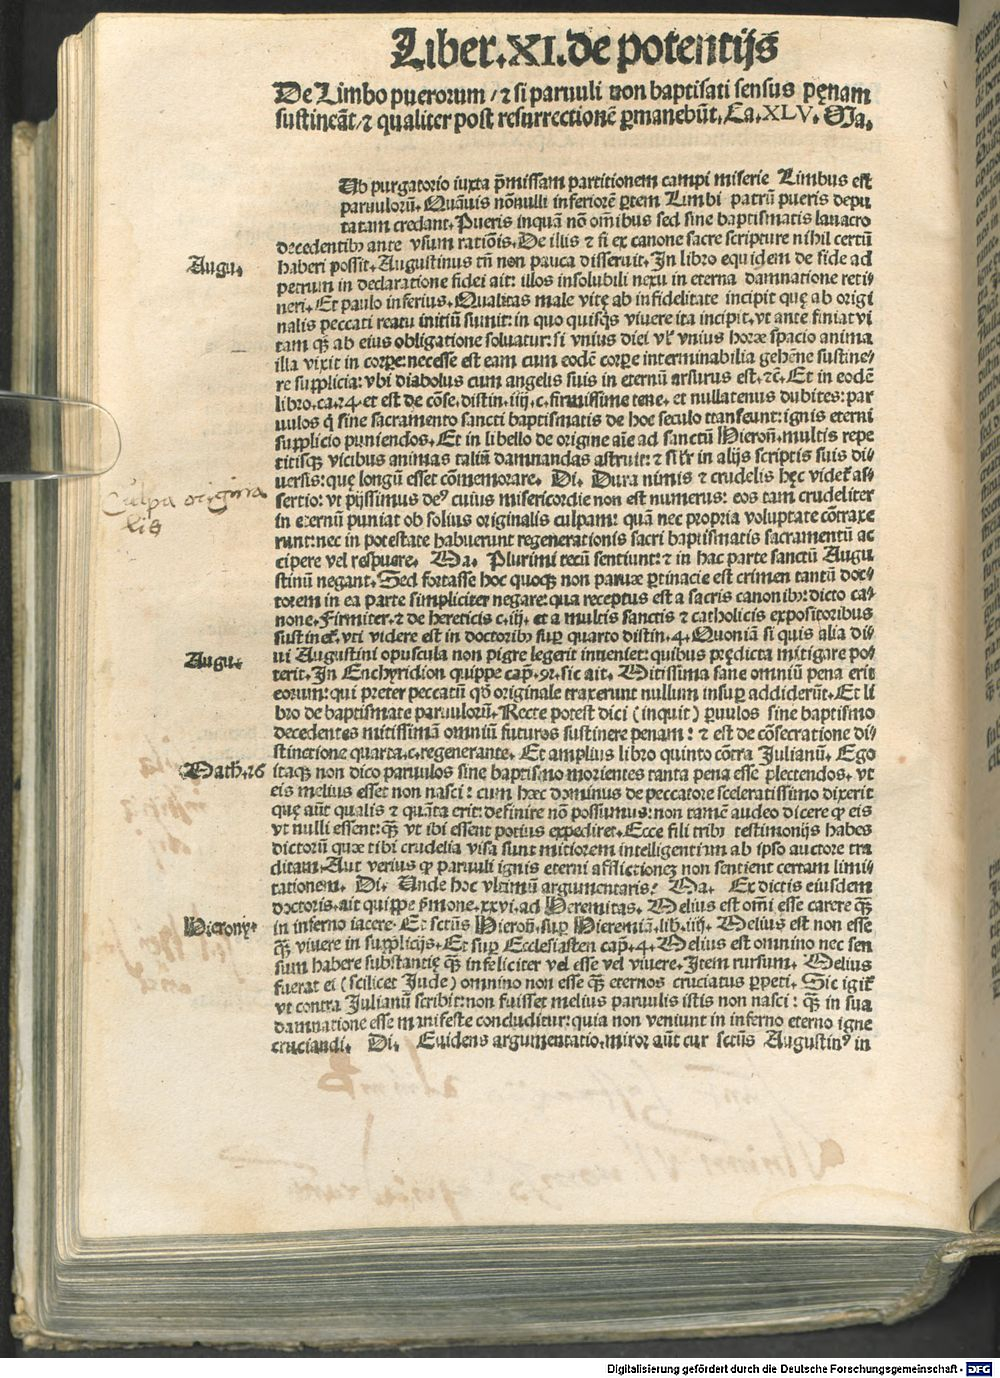 Liber.XI.de potentijs
De Limbo puerorum/⁊ si paruuli non baptisati sensus pęnam
sustineāt/⁊ qualiter post resurrectionē ꝑmanebūt.Ca.XLV. Ma.
Ab purgatorio iuxta p̄missam partitionem campi miserie Limbus est
paruulorū. Quāuis nōnulli inferiorē ꝑtem Limbi patrū pueris depu
tatam credant. Pueris inquā nō om̄ibus sed sine baptismatis lauacro
decedentibꝰ ante vsum ratiōis. De illis ⁊ si ex canone sacre scripture nihil certū
Augu.
haberi possit. Augustinus tn̄ non pauca disseruit. In libro equidem de fide ad
petrum in declaratione fidei ait: illos insolubili nexu in eterna damnatione reti
neri. Et paulo inferius. Qualitas male vitę ab infidelitate incipit quę ab origi
nalis peccati reatu initiū sumit: in quo quisqꝫ viuere ita incipit. vt ante finiat vi
tam qꝫ ab eius obligatione soluatur: si vnius diei vl̕ vnius horæ spacio anima
illa vixit in corpe: necesse est eam cum eodē corpe interminabilia gehēne sustine/
re supplicia: vbi diabolus cum angelis suis in eternū arsurus est. ⁊c. Et in eodē
libro. ca. 24. et est de cōse. distin. iiij. c. firmissime tene. et nullatenus dubites: par
uulos q̇ sine sacramento sancti baptismatis de hoc seculo transeunt: ignis eterni
supplicio puniendos. Et in libello de origine aīe ad sanctū Hieron̄. multis repe
titisqꝫ vicibus animas taliū damnandas astruit: ⁊ sil̕r in alijs scriptis suis di/
uersis: quę longū esset cōmemorare. Di. Dura nimis ⁊ crudelis hęc videt̕ as/
Culpa origina
lis
sertio: vt pijssimus deꝰ cuius misericordie non est numerus: eos tam crudeliter
in eternū puniat ob solius originalis culpam: quā nec propria voluptate cōtraxe
runt: nec in potestate habuerunt regenerationis sacri baptismatis sacramentū ac
cipere vel respuere. Ma. Plurimi tecū sentiunt: ⁊ in hac parte sanctū Augu
stinū negant. Sed fortasse hoc quoqꝫ non paruæ ꝑtinacie est crimen tantū doc/
torem in ea parte simpliciter negare: qua receptus est a sacris canonibꝰ: dicto ca/
none. Firmiter. ⁊ de hereticis c. iij. et a multis sanctis ⁊ catholicis expositoribus
sustinet̕. vti videre est in doctoribꝰ suꝑ quarto distin. 4. Quoniā si quis alia di/
Augu.
ui Augustini opuscula non pigre legerit inueniet: quibus prędicta mitigare po/
terit. In Enchyridion quippe cap̄. 91. sic ait. Mitissima sane omniū pena erit
eorum: qui preter peccatū qd̕ originale traxerunt nullum insuꝑ addiderūt. Et li
bro de baptismate paruulorū. Recte potest dici (inquit) ꝑuulos sine baptismo
decedentes mitissimā omniū futuros sustinere penam: ⁊ est de cōsecratione di/
stinctione quarta. c. regenerante. Et amplius libro quinto cōtra Julianū. Ego
Math. 26
itaqꝫ non dico paruulos sine baptismo morientes tanta pena esse plectendos. vt
eis melius esset non nasci: cum hoc dominus de peccatore sceleratissimo dixerit
quę aūt qualis ⁊ quāta erit: definire nō possumus: non tamē audeo dicere ꝙ eis
vt nulli essent: qꝫ vt ibi essent potius expediret. Ecce fili tribꝰ testimonijs habes
dictorū quæ tibi crudelia visa sunt mitiorem intelligentiam ab ipso auctore tra
ditam. Aut verius ꝙ paruuli ignis eterni afflictionez non sentient certam limi/
tationem. Di. Unde hoc vltimū argumentaris? Ma. Ex dictis eiusdem
doctoris. ait quippe ṗmone. xxvi. ad Heremitas. Melius est om̄i esse carere qꝫ
Hierony.
in inferno iacere. Et sctūs Hieron̄. suꝑ Hieremiā. lib. iiij. Melius est non esse
qꝫ viuere in supplicijs. Et suꝑ Ecclesiasten cap̄. 4. Melius est omnino nec sen
sum habere substantię qꝫ infeliciter vel esse vel viuere. Item rursum. Melius
fuerat ei (scilicet Jude) omnino non esse qꝫ eternos cruciatus ꝑpeti. Sic igit̕
vt contra Julianū scribit: non fuisset melius paruulis istis non nasci: qꝫ in sua
damnatione esse manifeste concluditur: quia non veniunt in inferno eterno igne
cruciandi. Di. Euidens argumentatio. miror aūt cur sctūs Augustinꝰ in
Digitalisierung gefördert durch die Deutsche Forschungsgemeinschaft - DFG